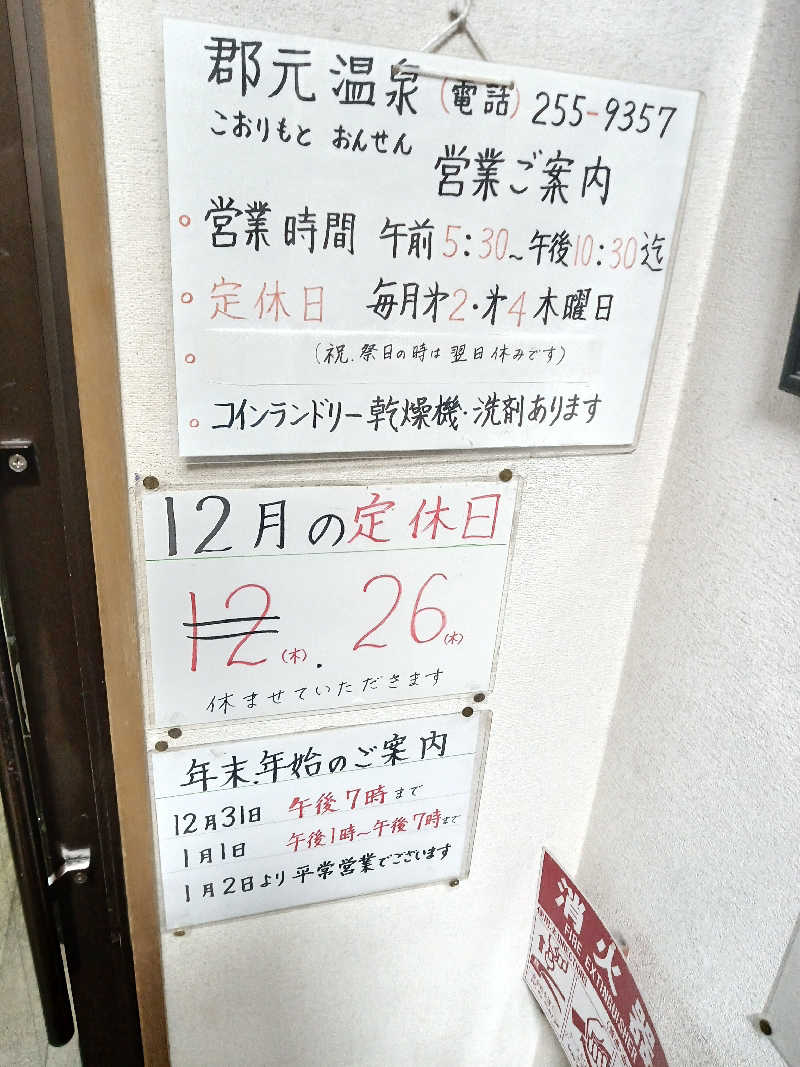 郡元温泉(電話)255-9357
こおりもと おんせん
営業ご案内
○営業時間 午前5:30~午後10:30迄
○定休日 毎月オ2・オ4木曜日
○(祝.祭日の時は翌日休みです)
○コインランドリー乾燥機・洗剤あります
12月の定休日
12(木). 26(木)
休ませていただきます
年末.年始のご案内
12月31日 午後7時まで
1月1日 午後1時~午後7時まで
1月2日より平常営業でございます
消火器
FIRE EXTINGUISHER